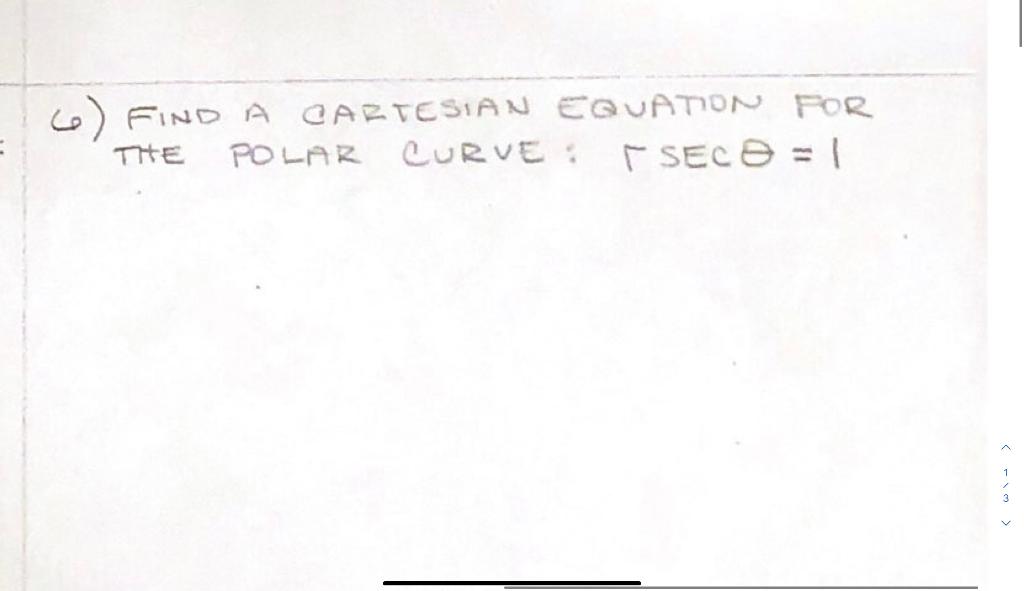 6) FIND A CARTESIAN EQUATION FOR
THE POLAR CURVE: r SEC θ = 1
1
/
3